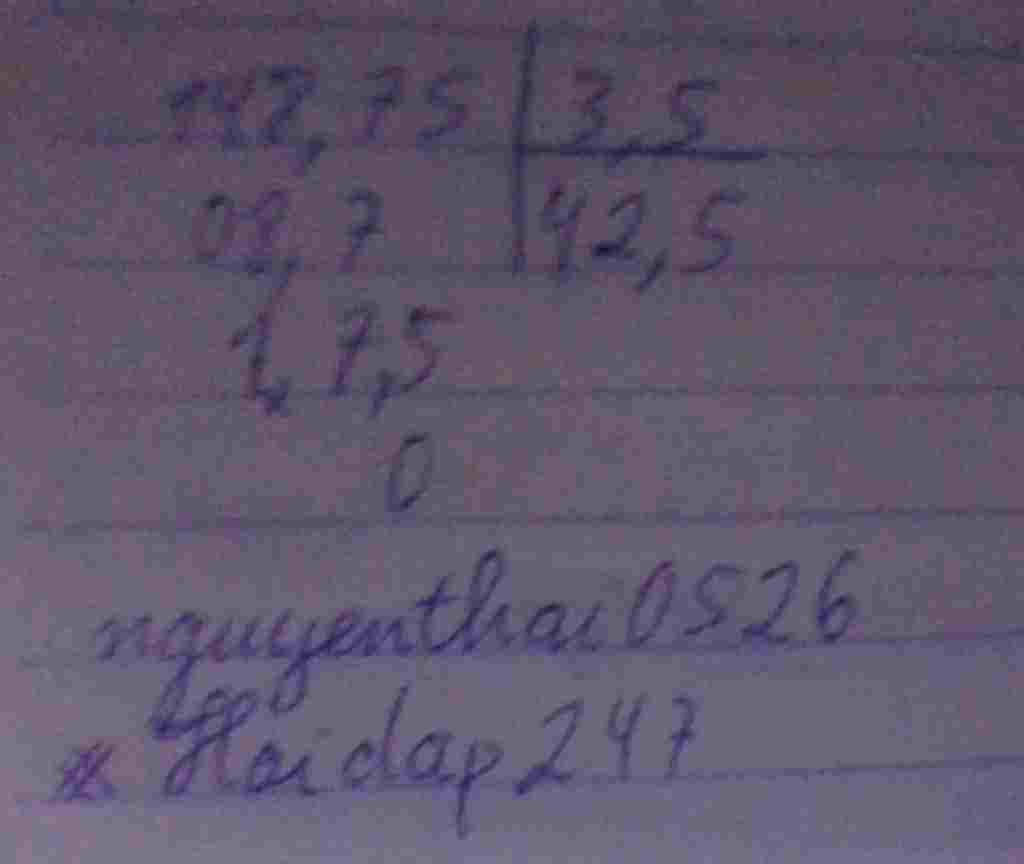 148,75 | 3,5
08,7 | 42,5
1,7,5
0
nguyenthai0526
Hoidap247